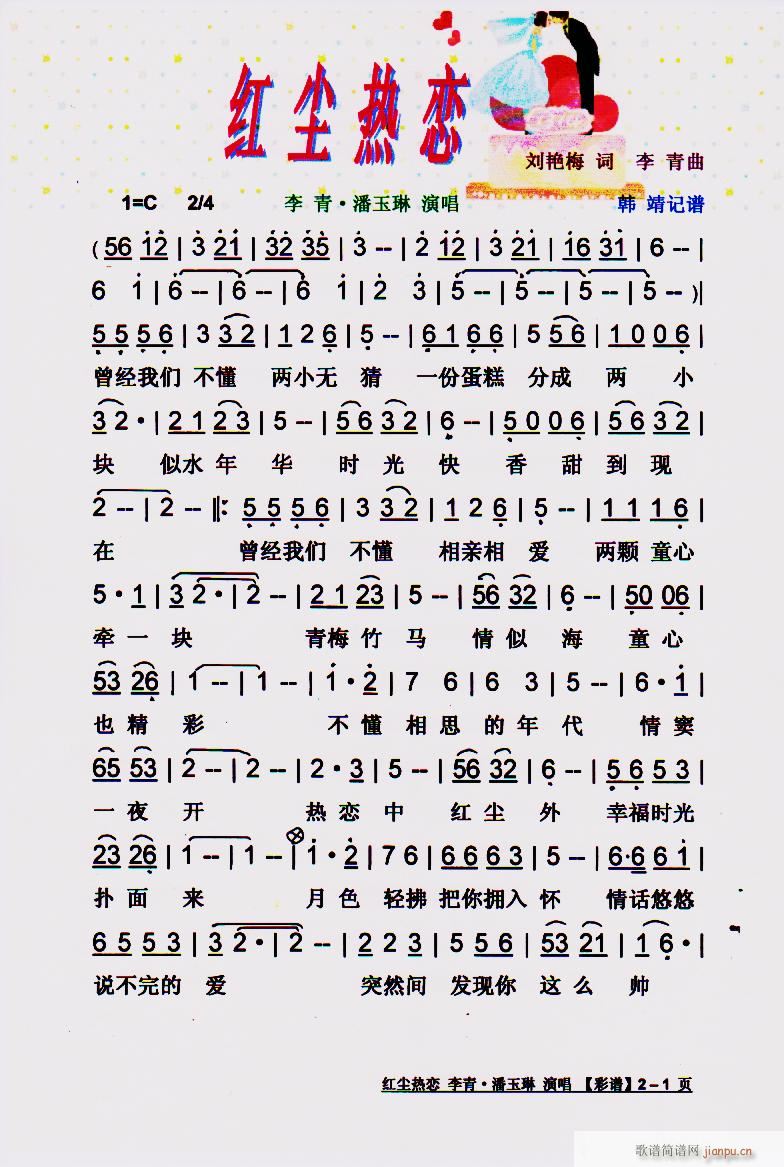 红尘热恋
刘艳梅 词 李 青曲
1=C 2/4 李 青·潘玉琳 演唱 韩 靖记谱
(56 12 | 3 21 | 32 35 | 3 -- | 2 12 | 3 21 | 16 31 | 6 -- |
6 1 | 6 -- | 6 -- | 6 1 | 2 3 | 5 -- | 5 -- | 5 -- | 5 -- )|
5 5 5 6 | 3 3 2 | 1 2 6 | 5 -- | 6 1 6 6 | 5 5 6 | 1 0 0 6 |
曾经我们 不懂 两小无 猜 一份蛋糕 分成 两 小
3 2 · | 2 1 2 3 | 5 -- | 5 6 3 2 | 6 -- | 5 0 0 6 | 5 6 3 2 |
块 似水年 华 时光快 香甜到现
2 -- | 2 -- ‖: 5 5 5 6 | 3 3 2 | 1 2 6 | 5 -- | 1 1 1 6 |
在 曾经我们 不懂 相亲相 爱 两颗童心
5 · 1 | 3 2 · | 2 -- | 2 1 23 | 5 -- | 56 32 | 6 -- | 50 06 |
牵一块 青梅竹马 情似海 童心
53 26 | 1 -- | 1 -- | 1 · 2 | 7 6 | 6 3 | 5 -- | 6 · 1 |
也精彩 不懂相思的年代 情窦
65 53 | 2 -- | 2 -- | 2 · 3 | 5 -- | 56 32 | 6 -- | 5 6 5 3 |
一夜开 热恋中 红尘外 幸福时光
23 26 | 1 -- | 1 -- | 1 · 2 | 7 6 | 6 6 6 3 | 5 -- | 6·6 6 1 |
扑面来 月色轻拂 把你拥入 怀 情话悠悠
6 5 5 3 | 3 2 · | 2 -- | 2 2 3 | 5 5 5 | 53 21 | 1 6 · |
说不完的 爱 突然间 发现你 这么 帅
红尘热恋 李青·潘玉琳 演唱 【彩谱】2－1 页
歌谱简谱网
jianpu.cn